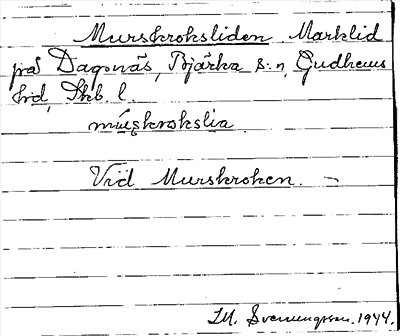 Murskroksliden. Marklid
på Dagsnäs, Bjärka s:n, Gudhems
hrd, Skb. l.
mu̇ʂkrokslia
Vid Murskroken. –
M. Svenungsson. 1944.